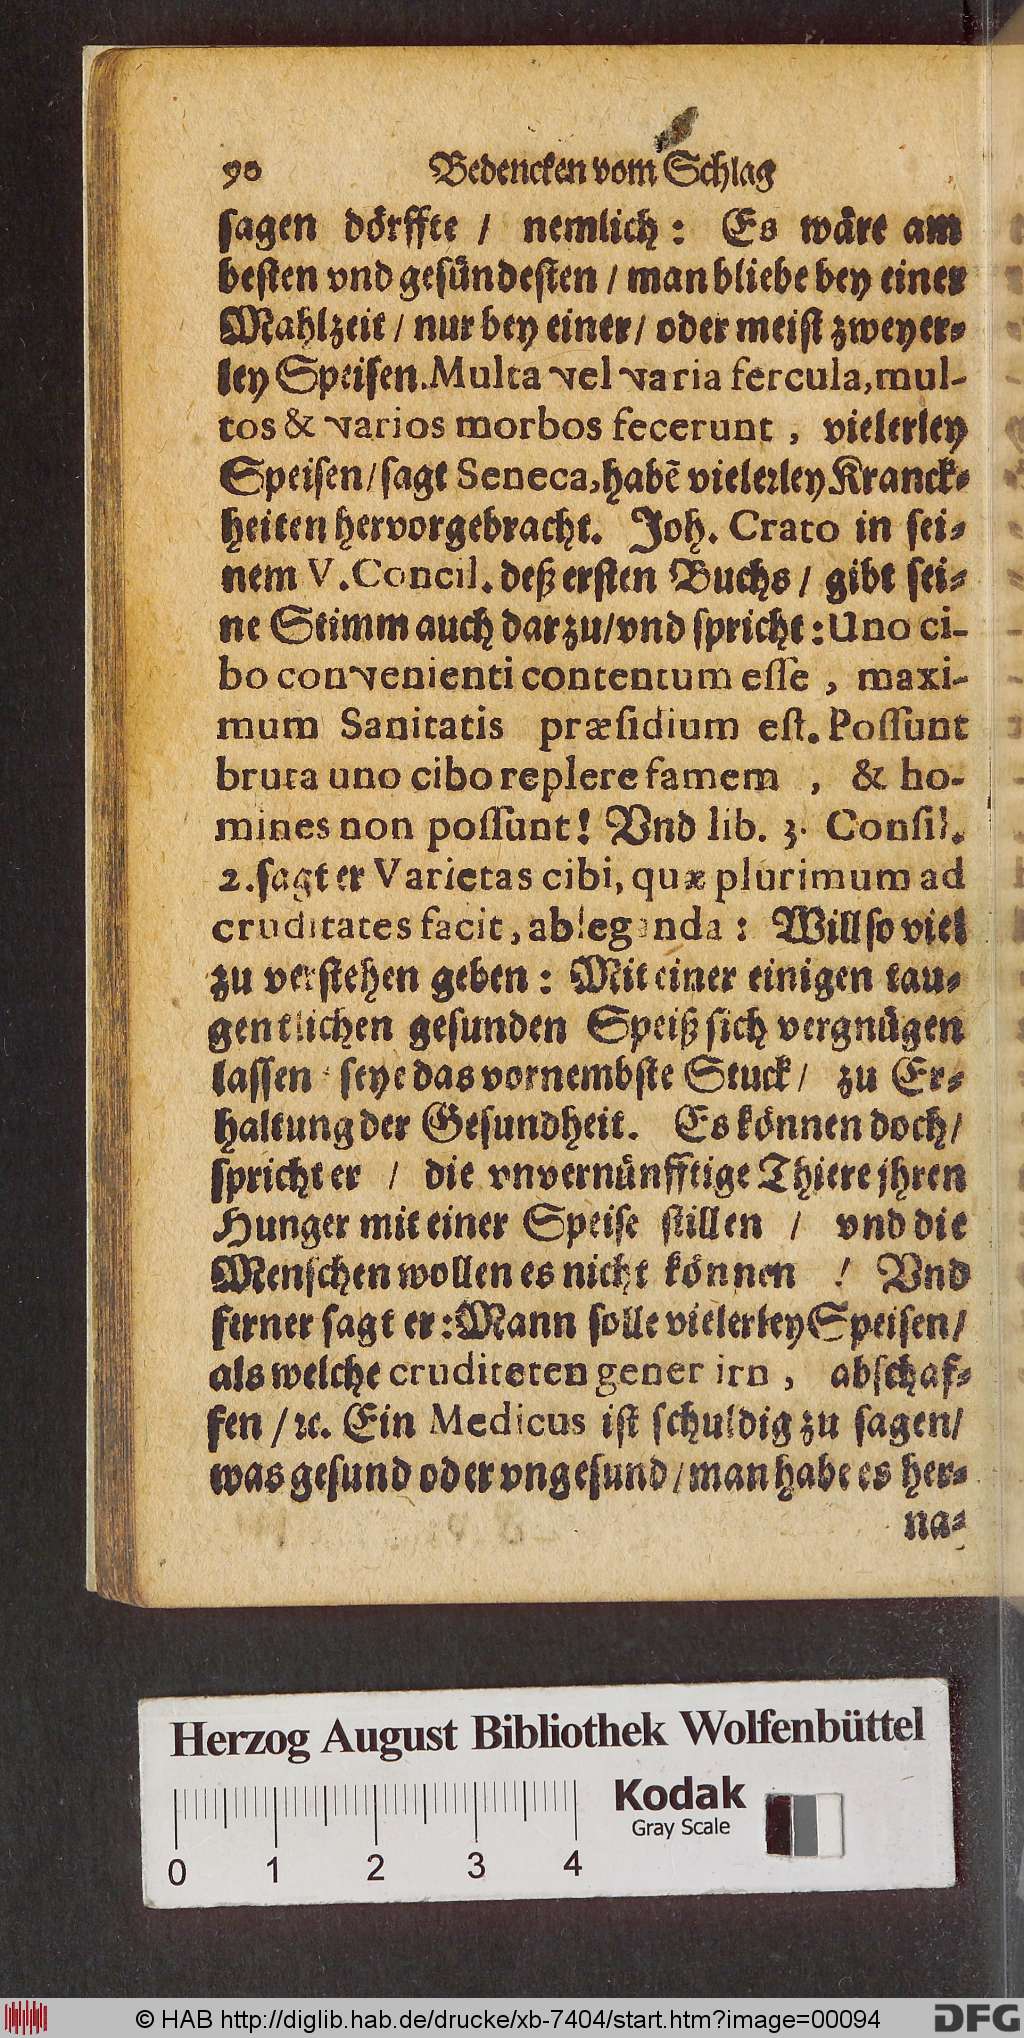 90 Bedencken vom Schlag
sagen dörffte / nemlich: Es wäre am
besten vnd gesündesten / man bliebe bey einer
Mahlzeit / nur bey einer / oder meist zweyer-
ley Speisen. Multa vel varia fercula, mul-
tos & varios morbos fecerunt, vielerley
Speisen / sagt Seneca, habē vielerley Kranck-
heiten hervorgebracht. Joh. Crato in sei-
nem V. Concil. deß ersten Buchs / gibt sei-
ne Stimm auch darzu / vnd spricht: Uno ci-
bo convenienti contentum esse, maxi-
mum Sanitatis præsidium est. Possunt
bruta uno cibo replere famem, & ho-
mines non possunt! Vnd lib. 3. Consil.
2. sagt er Varietas cibi, quæ plurimum ad
cruditates facit, ableganda: Will so viel
zu verstehen geben: Mit einer einigen tau-
gentlichen gesunden Speiß sich vergnügen
lassen seye das vornembste Stuck / zu Er-
haltung der Gesundheit. Es können doch /
spricht er / die vnvernünfftige Thiere jhren
Hunger mit einer Speise stillen / vnd die
Menschen wollen es nicht können ! Vnd
ferner sagt er: Mann solle vielerley Speisen /
als welche cruditeten generirn, abschaf-
fen / ꝛc. Ein Medicus ist schuldig zu sagen /
was gesund oder vngesund / man habe es her-
na-
Herzog August Bibliothek Wolfenbüttel
Kodak
Gray Scale
0 1 2 3 4
© HAB http://diglib.hab.de/drucke/xb-7404/start.htm?image=00094
DFG